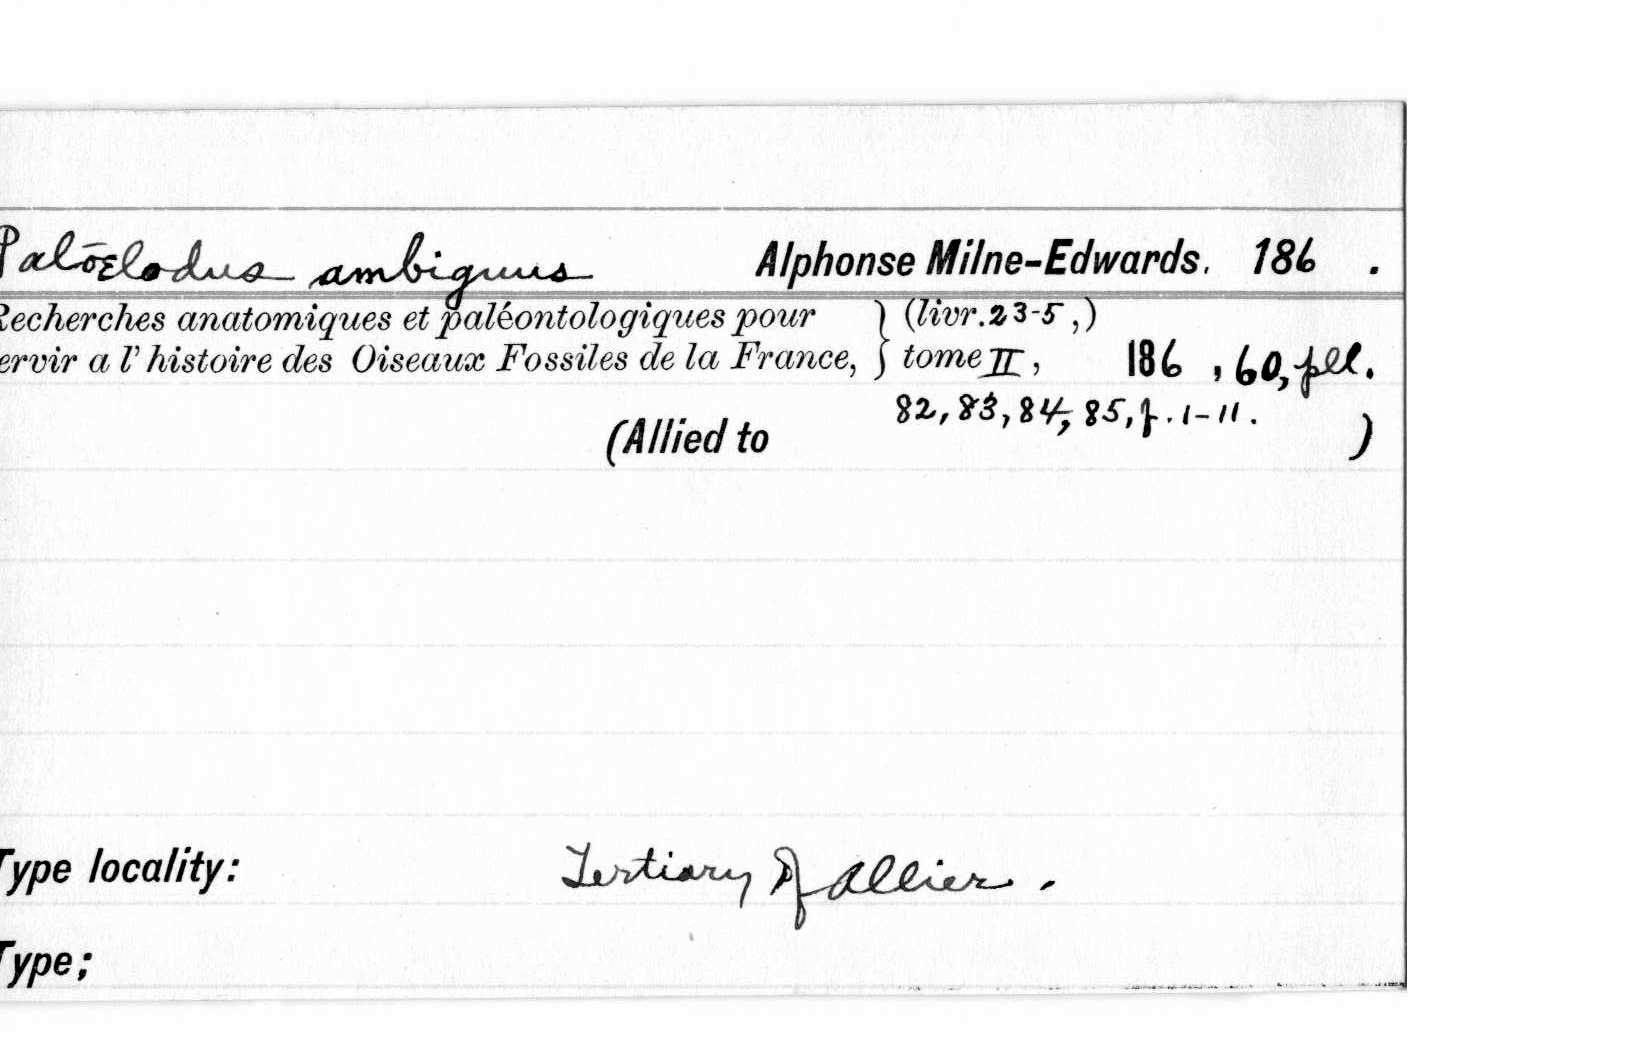 Palœlodus ambiguus Alphonse Milne-Edwards. 186 .
Recherches anatomiques et paléontologiques pour } (livr.23-5,)
ervir a l'histoire des Oiseaux Fossiles de la France, } tome II, 186 , 60, pll.
82, 83, 84, 85, f. 1-11.
(Allied to )
Type locality: Tertiary of Allier.
Type;